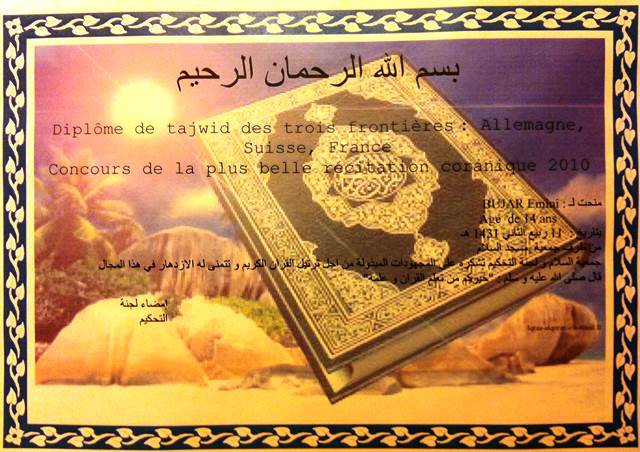 بسم الله الرحمان الرحيم
Diplôme de tajwid des trois frontières : Allemagne,
Suisse, France
Concours de la plus belle récitation coranique 2010
منحت لـ : BUJAR Emini
Agé de 14 ans
بتاريخ : 11 ربيع الثاني 1431 هـ
من طرف جمعية مسجد السلام
جمعية السلام و لجنة التحكيم تشكره على المجهودات المبذولة من اجل ترتيل القران الكريم و تتمنى له الازدهار في هذا المجال
قال صلى الله عليه و سلم : "خيركم من تعلم القران و علمه"
إمضاء لجنة
التحكيم